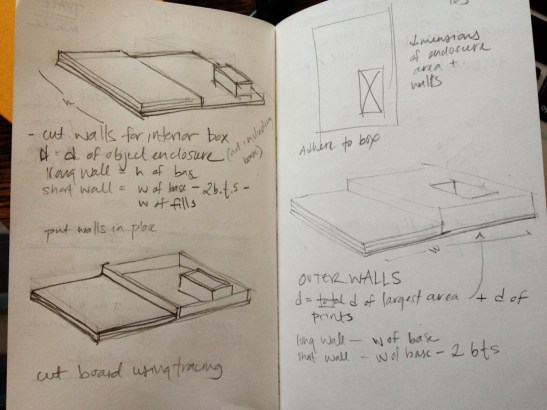 h
- cut walls for interior box
d = d. of object enclosure (not including base)
long wall = h of base
short wall = w of base - 2 b.t.s -
w of fills
put walls in place
cut board using tracing
dimensions
of enclosure
area +
walls
Adhere to box
W
OUTER WALLS
d = total d of largest area + d of
prints
long wall - w of base
short wall - w of base - 2 bts